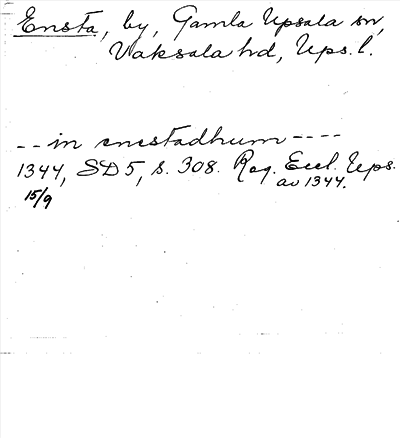 Ensta, by, Gamla Upsala sn,
Vaksala hd, Ups. l.
-- in enestadhum ----
1344, SD 5, s. 308. Reg. Eccl. Ups.
av 1344.
15/9